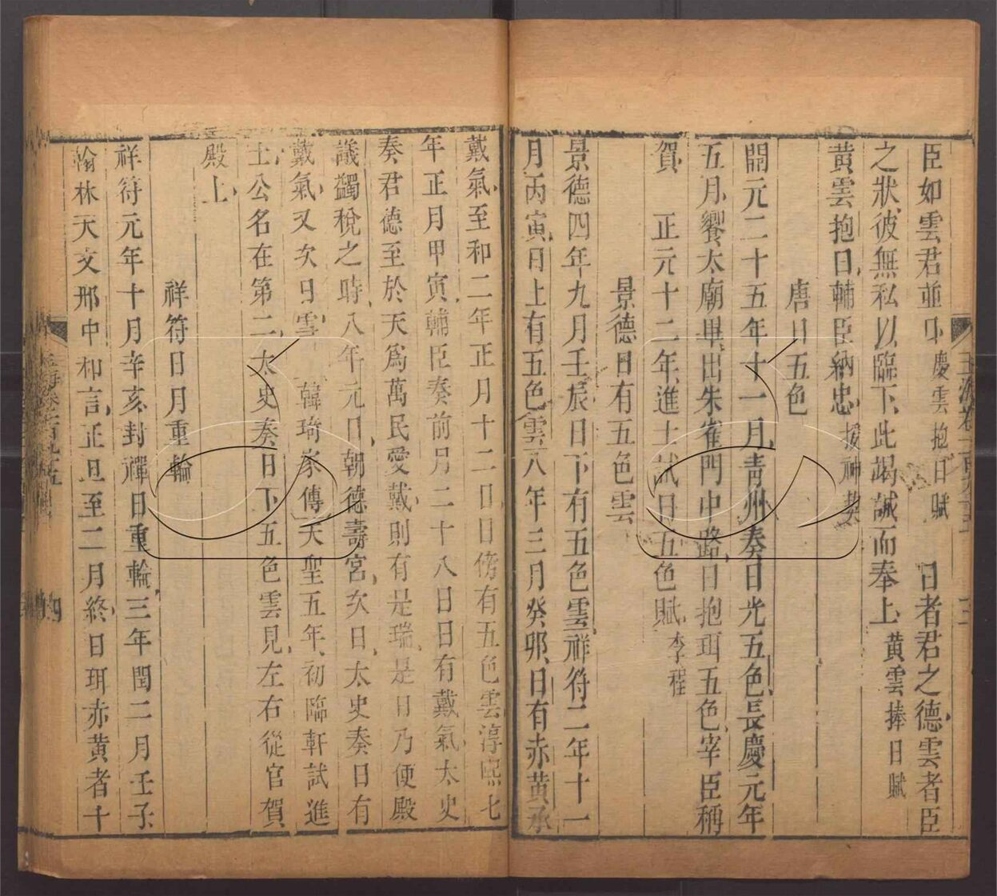 臣如雲君並中慶雲抱日賦 日者君之德雲者臣
之狀彼無私以臨下此竭誠而奉上黃雲捧日賦
黃雲抱日輔臣納忠援神契
唐日五色
開元二十五年十一月青州奏日光五色長慶元年
五月饗太廟畢出朱雀門中路日抱珥五色宰臣稱
賀 正元十二年進士試日五色賦李程
景德日有五色雲
景德四年九月壬辰日下有五色雲祥符二年十一
月丙寅日上有五色雲八年三月癸卯日有赤黃承
戴氣至和二年正月十二日日傍有五色雲淳熙七
年正月甲寅輔臣奏前月二十八日日有戴氣太史
奏君德至於天爲萬民愛戴則有是瑞是日乃便殿
議蠲稅之時八年元日朝德壽宮次日太史奏日有
戴氣又次日雲 韓琦家傳天聖五年初臨軒試進
士公名在第二太史奏日下五色雲見左右從官賀
殿上
祥符日月重輪
祥符元年十月辛亥封禪日重輪三年閏二月壬子
翰林天文邢中和言正旦至二月終日珥赤黃者十